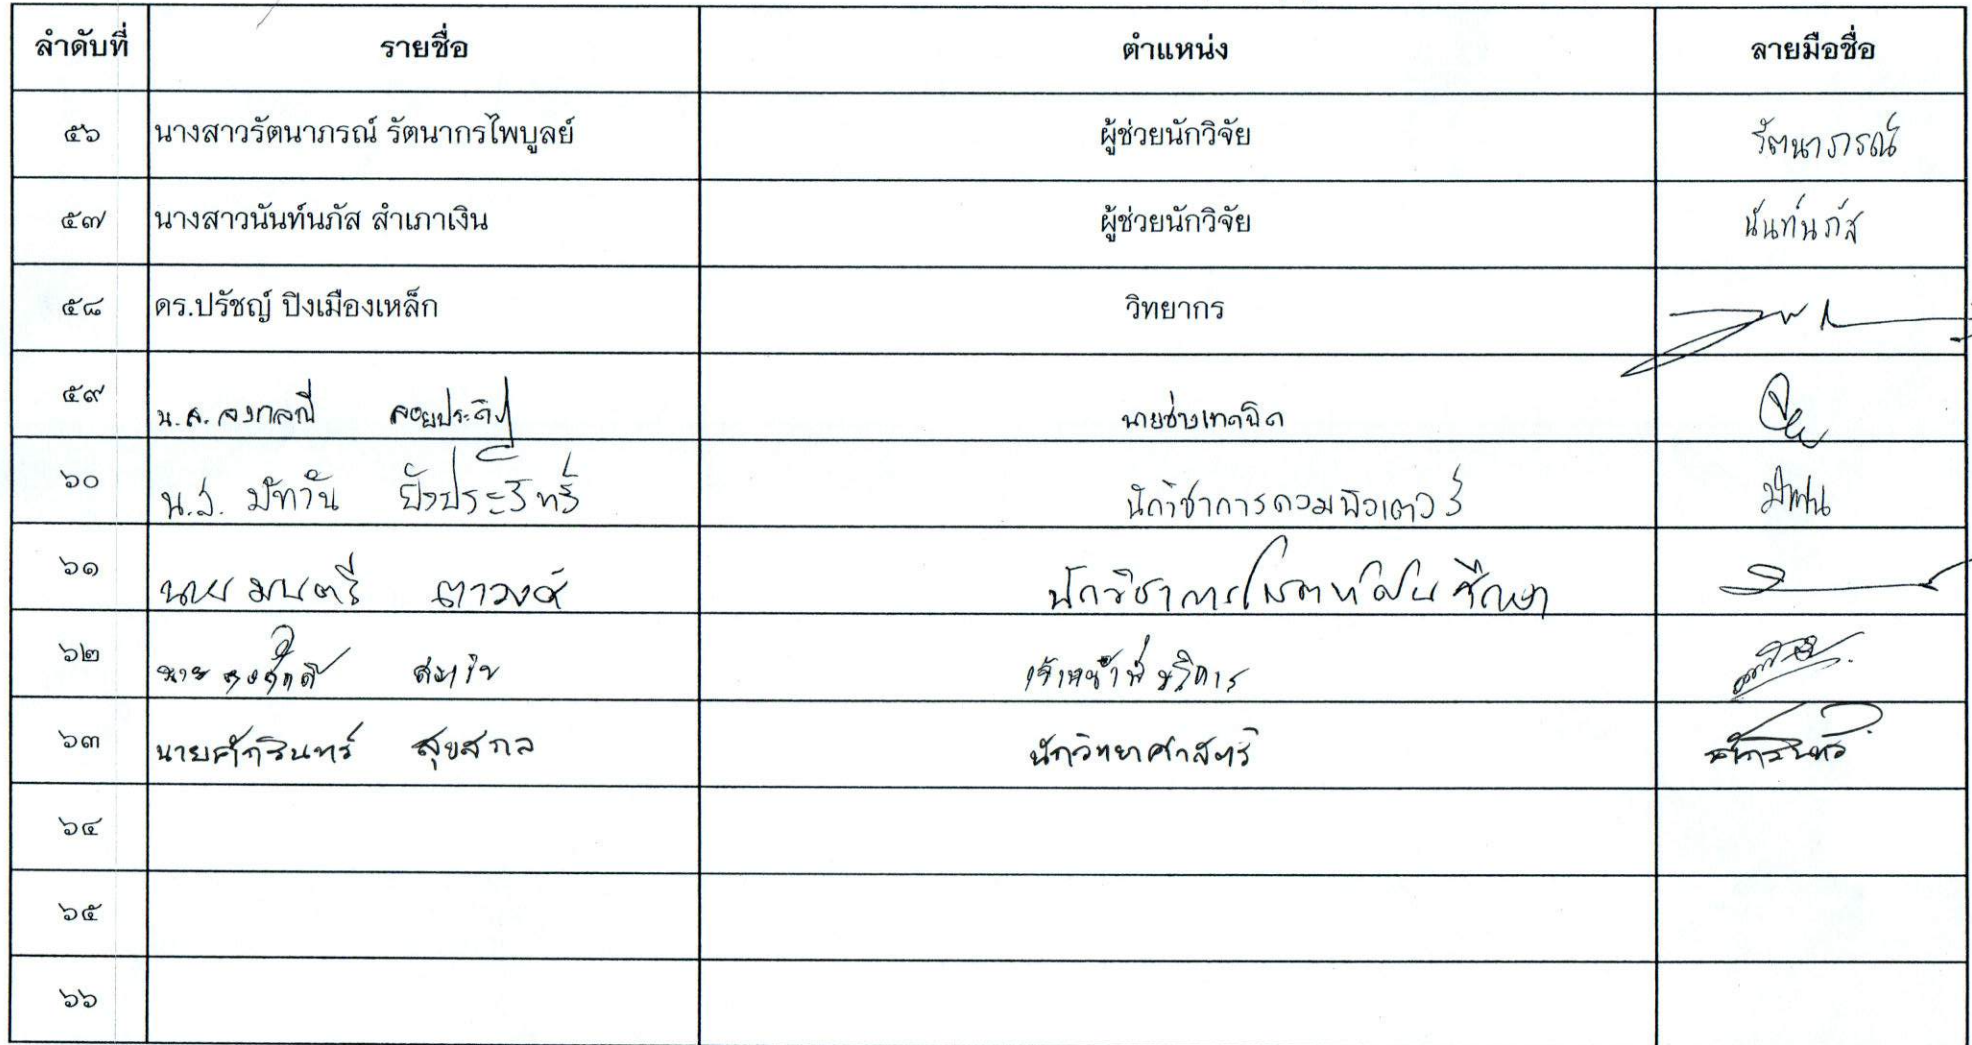 ลำดับที่ รายชื่อ ตำแหน่ง ลายมือชื่อ
๕๖ นางสาวรัตนาภรณ์ รัตนากรไพบูลย์ ผู้ช่วยนักวิจัย รัตนาภรณ์
๕๗ นางสาวนันท์นภัส สำเภาเงิน ผู้ช่วยนักวิจัย นันท์นภัส
๕๘ ดร.ปรัชญ์ ปิงเมืองเหล็ก วิทยากร
๕๙ น.ส. ลอยประดิษฐ์ นายช่างเทคนิค
๖๐ น.ส. มัทวัน นักวิชาการคอมพิวเตอร์
๖๑ นาย มนตรี ตาวงศ์ นักวิชาการโสตทัศนศึกษา
๖๒ นาย เจ้าหน้าที่บริการ
๖๓ นายศักรินทร์ สุขสกล นักวิทยาศาสตร์ ศักรินทร์
๖๔
๖๕
๖๖